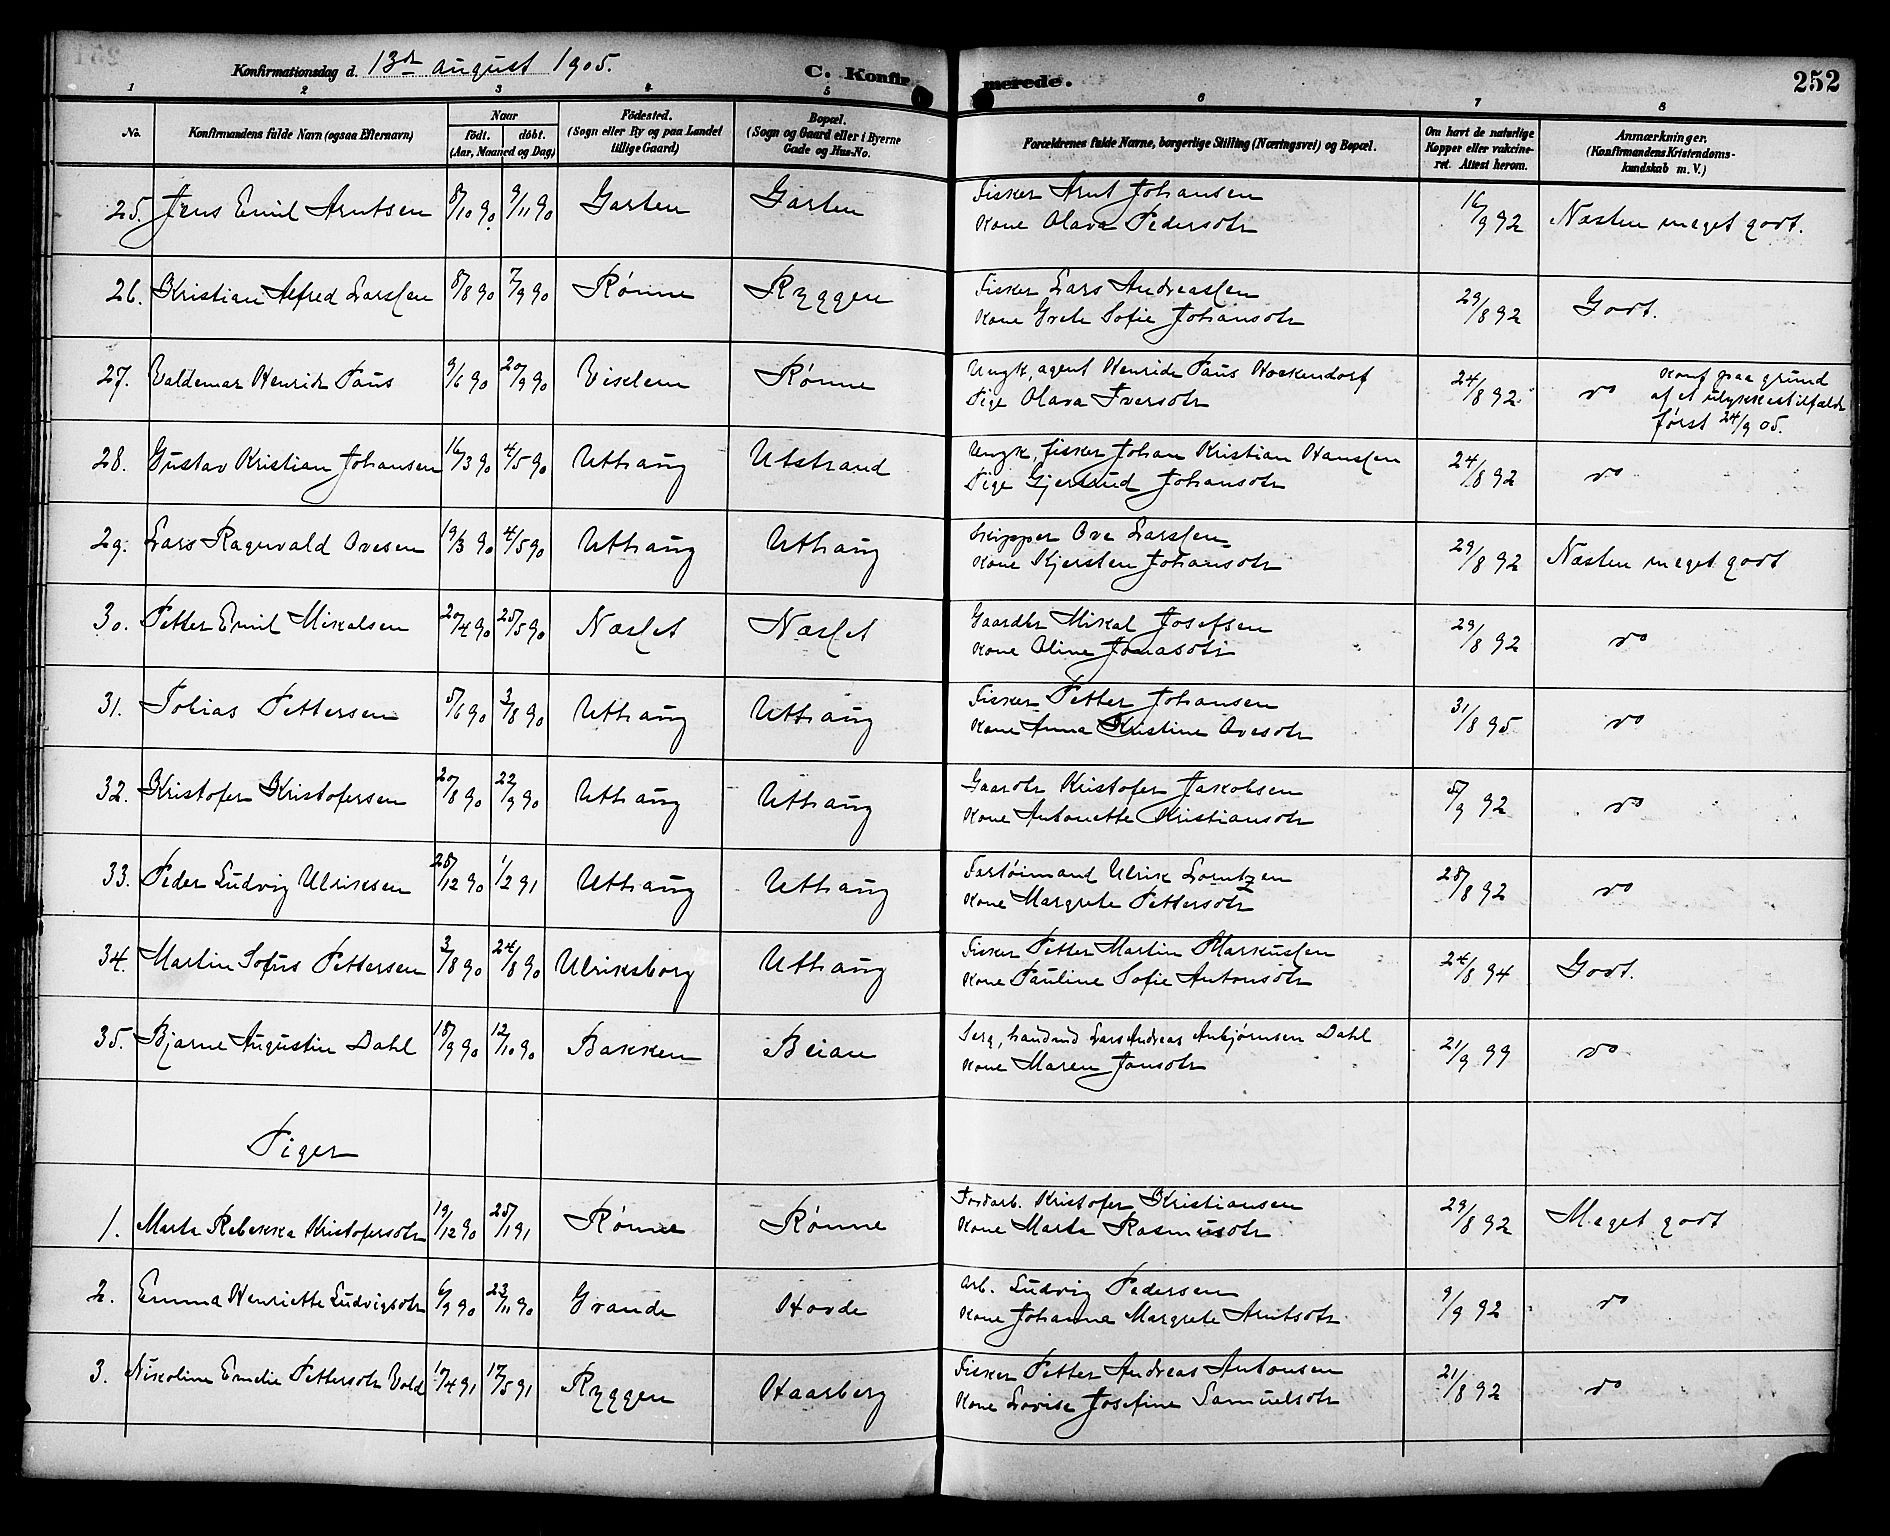 Konfirmationsdag d. 13de august 1905. C. Konfirmerede. 252
1 2 3 4 5 6 7 8
No. Konfirmandens fulde Navn (ogsaa Efternavn) Naar födt. döbt. (Aar, Maaned og Dag) Födested. (Sogn eller By og paa Landet tillige Gaard) Bopæl. (Sogn og Gaard eller i Byerne Gade og Hus-No. Forældrenes fulde Navne, borgerlige Stilling (Næringsvei) og Bopæl. Om havt de naturlige Kopper eller vaccineret. Attest herom. Anmærkninger. (Konfirmandens Kristendomskundskab m. V.)
25. Jens Emil Arntsen 8/10 90 9/11 90 Garten Garten Fisker Arnt Johansen
Kone Olava Pedersdtr 16/9 92 Næsten meget godt.
26. Kristian Alfred Larssen 8/8 90 7/9 90 Rønne Ryggen Fisker Lars Andreassen
Kone Grete Sofie Johansdtr 29/8 92 Godt.
27. Valdemar Henrik Paus 9/6 90 20/9 90 Viklem Rønne Ungk, agent Henrik Paus Wockendorf
Pige Olava Iversdtr 24/8 92 do Konf paa grund
af et ulykkestilfælde
først 24/9 05.
28. Gustav Kristian Johansen 16/3 90 4/5 90 Uthaug Utstrand Ungk, fisker Johan Kristian Hanssen
Pige Gjertrud Johansdtr 24/8 92 do
29. Lars Ragnvald Ovesen 19/3 90 4/5 90 Uthaug Uthaug Skipper Ove Larssen
Kone Kjersten Johansdtr 29/8 92 Næsten meget godt
30. Petter Emil Mikalsen 20/4 90 25/5 90 Næsset Næsset Gaardbr Mikal Josefsen
Kone Oline Jonasdtr 29/8 92 do
31. Tobias Pettersen 5/6 90 3/8 90 Uthaug Uthaug Fisker Petter Johansen
Kone Anna Kristine Ovesdtr 31/8 95 do
32. Kristofer Kristofersen 20/8 90 22/9 90 Uthaug Uthaug Gaardbr Kristofer Jakobsen
Kone Antonette Kristiansdtr 5/9 92 do
33. Peder Ludvig Ulriksen 28/12 90 1/2 91 Uthaug Uthaug Fartøimand Ulrik Lorntzen
Kone Margrete Pettersdtr 28/8 92 do
34. Martin Sofus Pettersen 3/8 90 24/8 90 Ulriksborg Uthaug Fisker Petter Martin Markussen
Kone Pauline Sofie Antonsdtr 24/8 94 Godt.
35. Bjarne Augustin Dahl 18/9 90 12/10 90 Bakken Beian Serg, handmd Lars Andreas Anbjørnsen Dahl
Kone Maren Jansdtr 21/9 99 do
Piger
1. Marta Rebekka Kristofersdtr 19/12 90 25/1 91 Rønne Rønne Jordarb. Kristofer Kristiansen
Kone Marta Rasmusdtr 29/8 92 Meget godt
2. Emma Henriette Ludvigsdtr 6/9 90 23/11 90 Grande Hovde Arb. Ludvig Pedersen
Kone Johanna Margrete Arntsdtr 9/9 92 do
3. Nikoline Emelie Pettersdtr Vold 17/4 91 17/5 91 Ryggen Haarberg Fisker Petter Andreas Antonsen
Kone Lovise Josefine Samuelsdtr 21/8 92 do